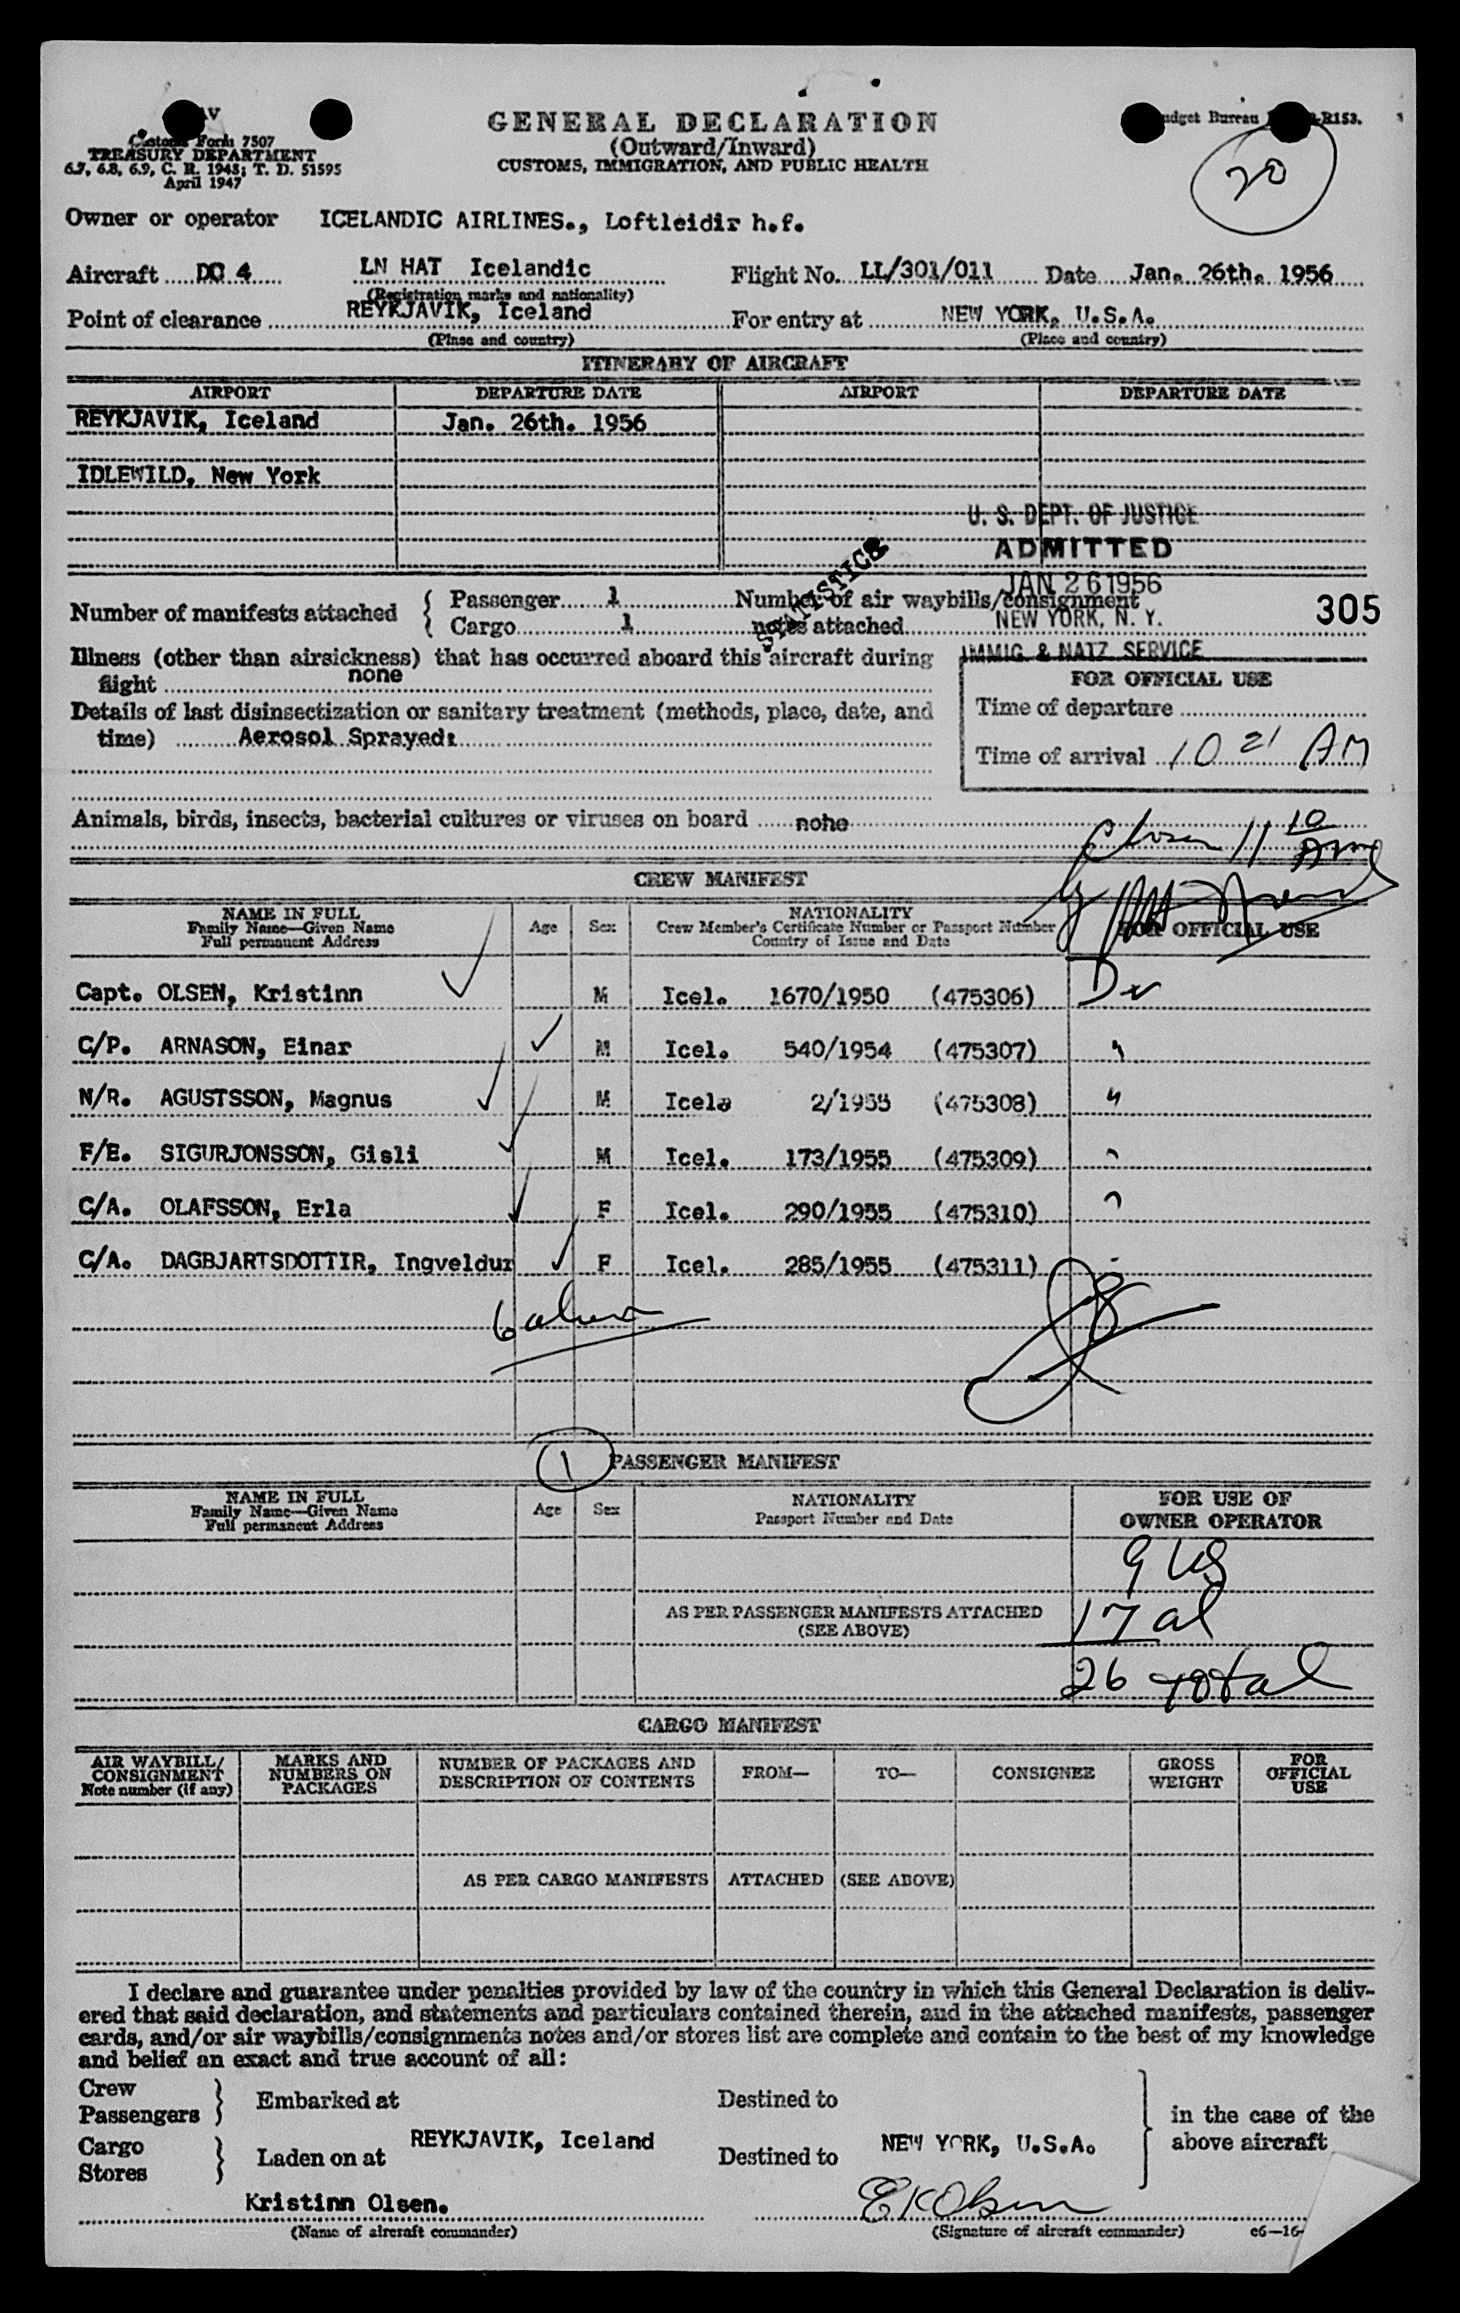 GENERAL DECLARATION
(Outward/Inward)
CUSTOMS, IMMIGRATION, AND PUBLIC HEALTH
Customs Form 7507
TREASURY DEPARTMENT
6.7, 6.8, 6.9, C. R. 1943; T. D. 51595
April 1947
Budget Bureau R153.
20
Owner or operator ICELANDIC AIRLINES., Loftleidir h.f.
Aircraft DC 4 LN HAT Icelandic Flight No. LL/301/011 Date Jan. 26th. 1956
(Registration marks and nationality)
Point of clearance REYKJAVIK, Iceland For entry at NEW YORK, U.S.A.
(Place and country) (Place and country)
ITINERARY OF AIRCRAFT
AIRPORT DEPARTURE DATE AIRPORT DEPARTURE DATE
REYKJAVIK, Iceland Jan. 26th. 1956
IDLEWILD, New York
U. S. DEPT. OF JUSTICE
ADMITTED
JAN 26 1956
NEW YORK, N. Y.
IMMIG & NATZ SERVICE
STATISTICS
305
Number of manifests attached { Passenger 1 Number of air waybills/consignment
Cargo 1 notes attached
Illness (other than airsickness) that has occurred aboard this aircraft during
flight none
Details of last disinsectization or sanitary treatment (methods, place, date, and
time) Aerosol Sprayed:
FOR OFFICIAL USE
Time of departure
Time of arrival 10 21 AM
Animals, birds, insects, bacterial cultures or viruses on board none
11 10 AM
CREW MANIFEST
NAME IN FULL
Family Name—Given Name
Full permanent Address
Age Sex
NATIONALITY
Crew Member's Certificate Number or Passport Number
Country of Issue and Date
FOR OFFICIAL USE
Capt. OLSEN, Kristinn M Icel. 1670/1950 (475306)
C/P. ARNASON, Einar M Icel. 540/1954 (475307) "
N/R. AGUSTSSON, Magnus M Icel. 2/1955 (475308) "
F/E. SIGURJONSSON, Gisli M Icel. 173/1955 (475309) "
C/A. OLAFSSON, Erla F Icel. 290/1955 (475310) "
C/A. DAGBJARTSDOTTIR, Ingveldur F Icel. 285/1955 (475311)
1
PASSENGER MANIFEST
NAME IN FULL
Family Name—Given Name
Full permanent Address
Age Sex
NATIONALITY
Passport Number and Date
FOR USE OF
OWNER OPERATOR
9 US
AS PER PASSENGER MANIFESTS ATTACHED
(SEE ABOVE)
17 al
26 total
CARGO MANIFEST
AIR WAYBILL/
CONSIGNMENT
Note number (if any)
MARKS AND
NUMBERS ON
PACKAGES
NUMBER OF PACKAGES AND
DESCRIPTION OF CONTENTS
FROM— TO— CONSIGNEE
GROSS
WEIGHT
FOR
OFFICIAL
USE
AS PER CARGO MANIFESTS ATTACHED (SEE ABOVE)
I declare and guarantee under penalties provided by law of the country in which this General Declaration is deliv-
ered that said declaration, and statements and particulars contained therein, and in the attached manifests, passenger
cards, and/or air waybills/consignments notes and/or stores list are complete and contain to the best of my knowledge
and belief an exact and true account of all:
Crew
Passengers } Embarked at Destined to
Cargo
Stores } Laden on at REYKJAVIK, Iceland Destined to NEW YORK, U.S.A.
in the case of the
above aircraft
Kristinn Olsen. EKOlsen
(Name of aircraft commander) (Signature of aircraft commander) c6—16-